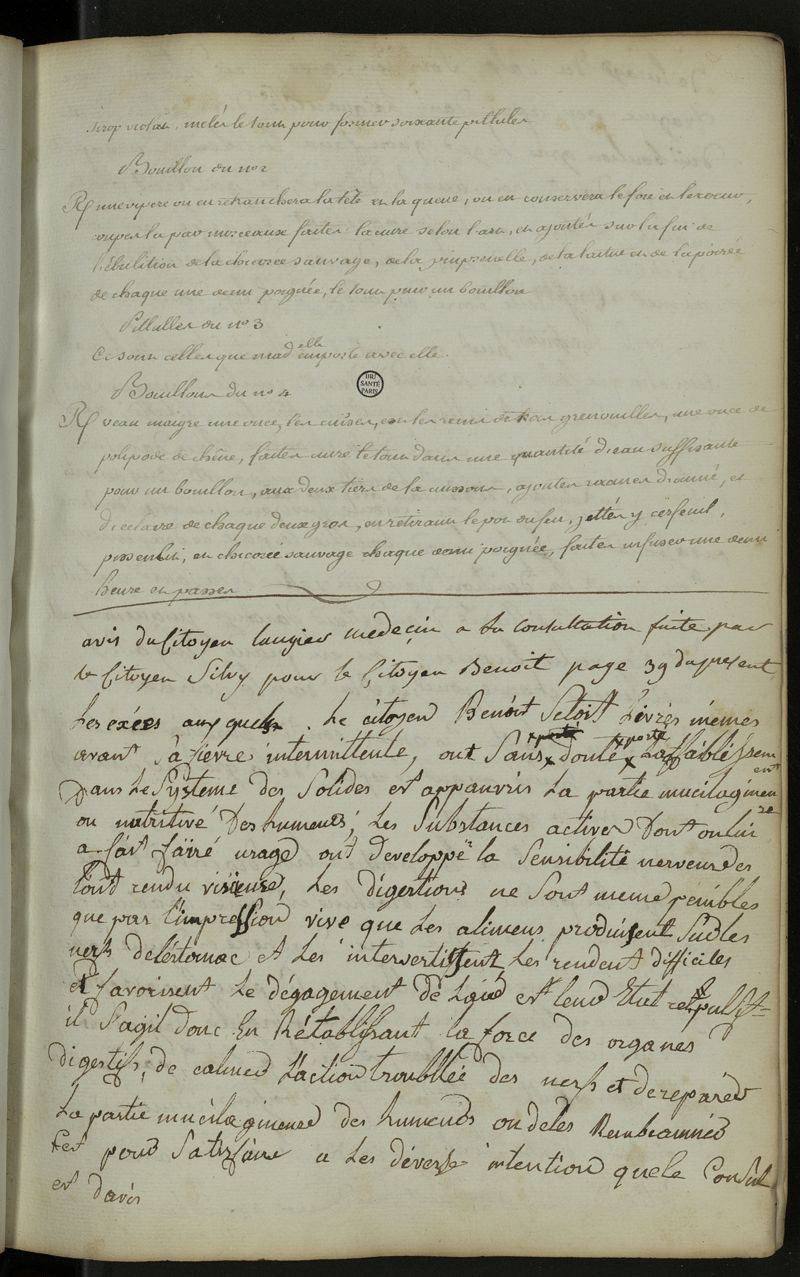 sirop violat, mêlés le tout pour former soixante pillules
Bouillon du n° 2
R une vipere on en retranchera la tête et la queue, on en conservera le foie et le coeur,
coupés la par morceaux faites la cuire selon l'art, et ajoutés sur la fin de
l'ébulition de la chicorée sauvage, de la pimprenelle, de la laitue et de la poirée
de chaque une demi poignée, le tout pour un bouillon
Pillulles du n° 3
Ce sont celles que mad.elle emporte avec elle.
BIU SANTÉ PARIS
Bouillons du n° 4
R veau maigre une once, les cuisses, et les reins de trois grenouilles, une once de
polipode de chêne, faites cuire le tout dans une quantité d'eau suffisante
pour un bouillon, aux deux tiers de la cuisson, ajoutés racines d'aunée, et
de chaque deux gros, en retirant le pot du feu, jettés y cerfeuil,
pissenlit, et chicorée sauvage chaque demi poignée, faites infuser une demi
heure et passés
avis du Citoyen laugier medecin a la Consultation faite par
le Citoyen Silvy pour le Citoyen Benoit page 39 du present
Les excès auxquels le citoyen Benoit Setoit Livrés mêmes
avant Sa fievre intermittente, ont Sans doute porté L'affoiblissem
ent
Dans Le Système des Solides et appauvris La partie mucilagineu
se
ou nutritive Des humeurs; Les Substances actives Dont on lui
a fait faire usage ont developpé la Sensibilité nerveuse des
L'ont rendu vicieuse, Les digestions ne Sont meme penibles
que par l'impression vive que Les alimens produisent Sur les
nerfs de lestomac et Les intervertissent, Les rendent difficiles
et favorisent Le dégagement de L'air et leur Etat
il S'agit donc En Rétablissant la force des organes
digestifs, de calmer L'action troubllée des nerfs et de reparer
La partie mucilagineuse des humeurs ou de les
Cet pour Satisfaire a Les diverse intention que le Conseil
est d'avis